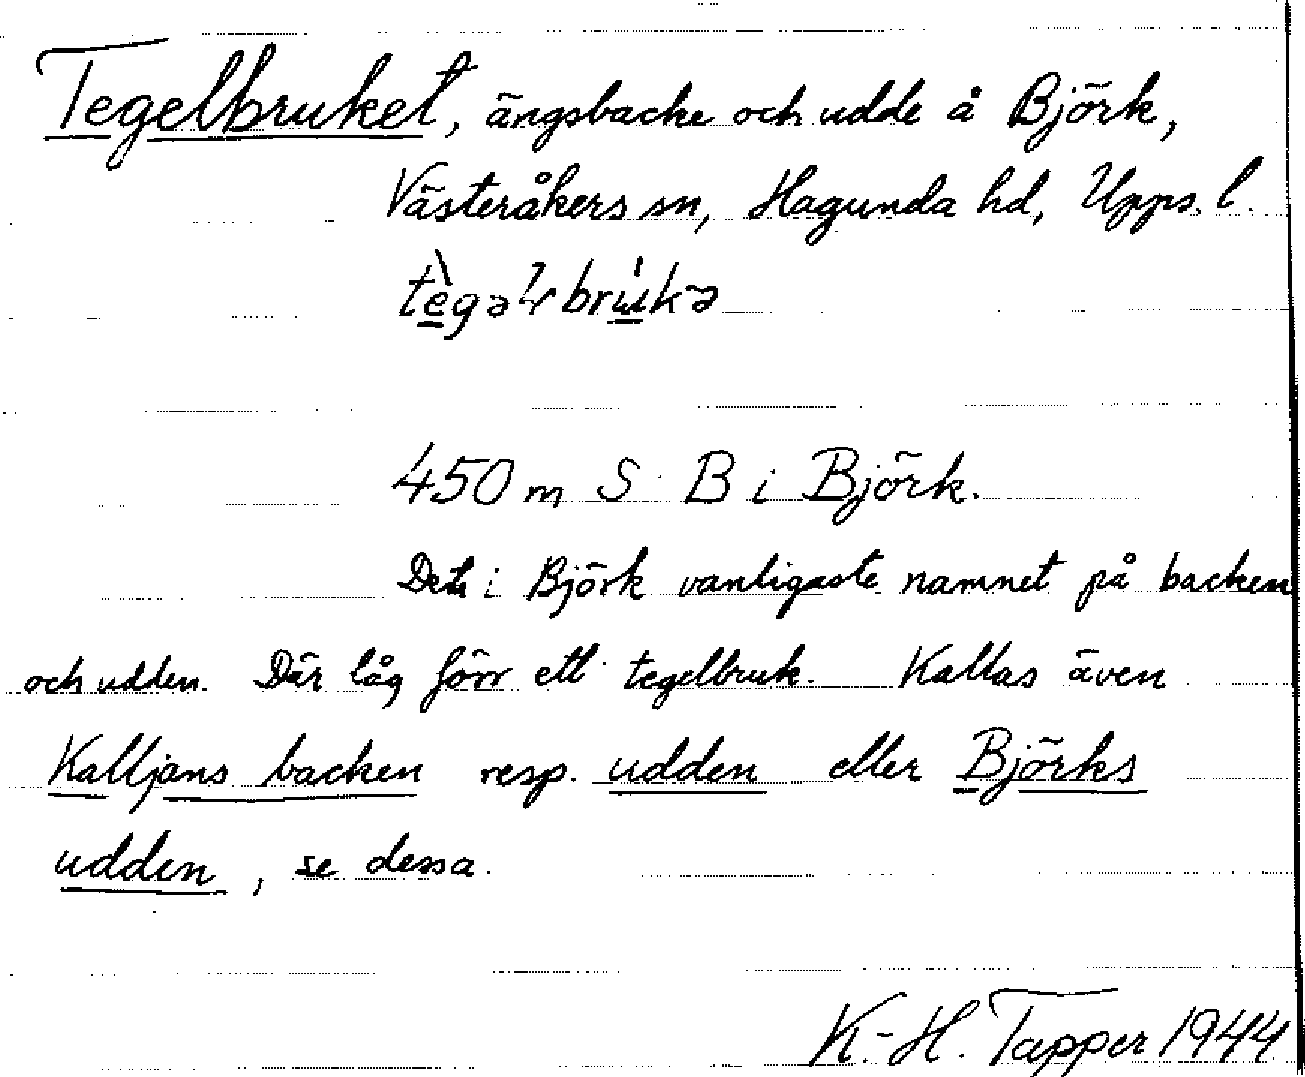 Tegelbruket, ängsbacke och udde å Björk,
Västeråkers sn, Hagunda hd, Upps. l.
450 m S B i Björk.
Det i Björk vanligaste namnet på backen
och udden. Där låg förr ett tegelbruk. Kallas även
Kalljans backen resp. udden eller Björks
udden, se dessa.
K.-H. Tapper 1944